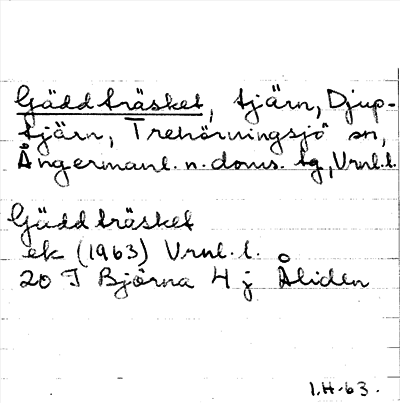 Gäddträsket, tjärn, Djup-
tjärn, Trehörningsjö sn,
Ångermanl. n. doms. tg, Vrnl. l.
Gäddträsket
ek (1963) Vrnl. l.
20 I Björna 4 j Åliden
I.H-63.